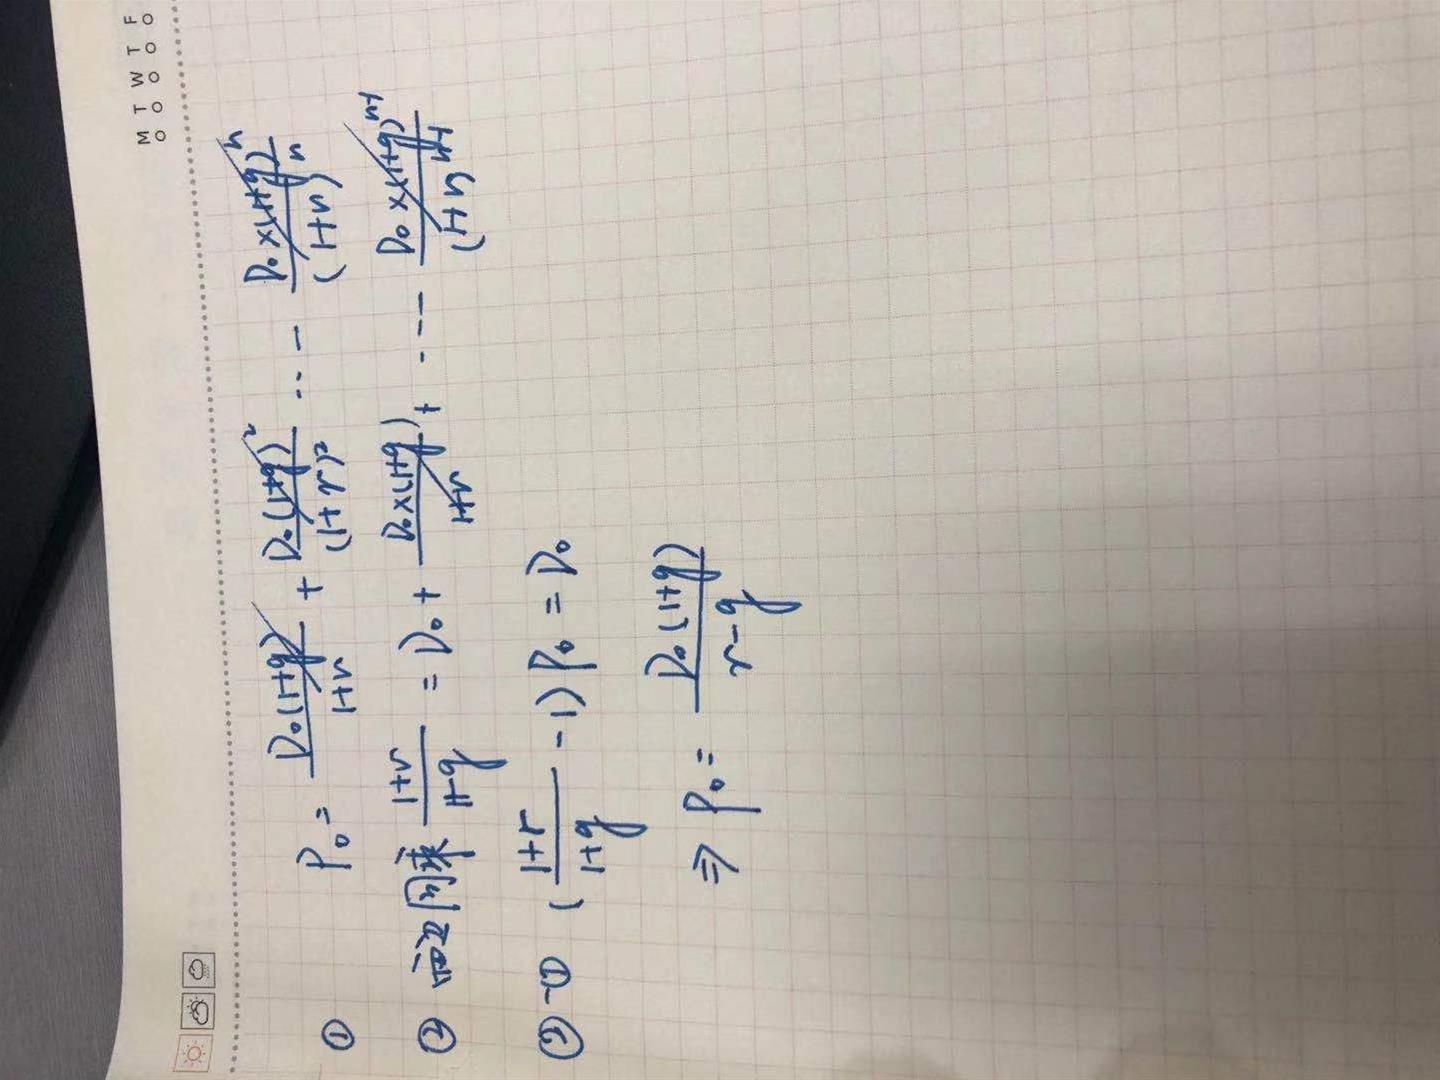 M T W T F
① P₀ = D₀(1+g)/1+r + D₀(1+g)²/(1+r)² ... D₀×(1+g)ⁿ/(1+r)ⁿ
② 两边同乘 1+r/1+g = D₀ + D₀×(1+g)/1+r + ... D₀×(1+g)ⁿ⁻¹/(1+r)ⁿ⁻¹
②-① (1+r/1+g - 1) P₀ = D₀
⇒ P₀ = D₀(1+g)/r-g